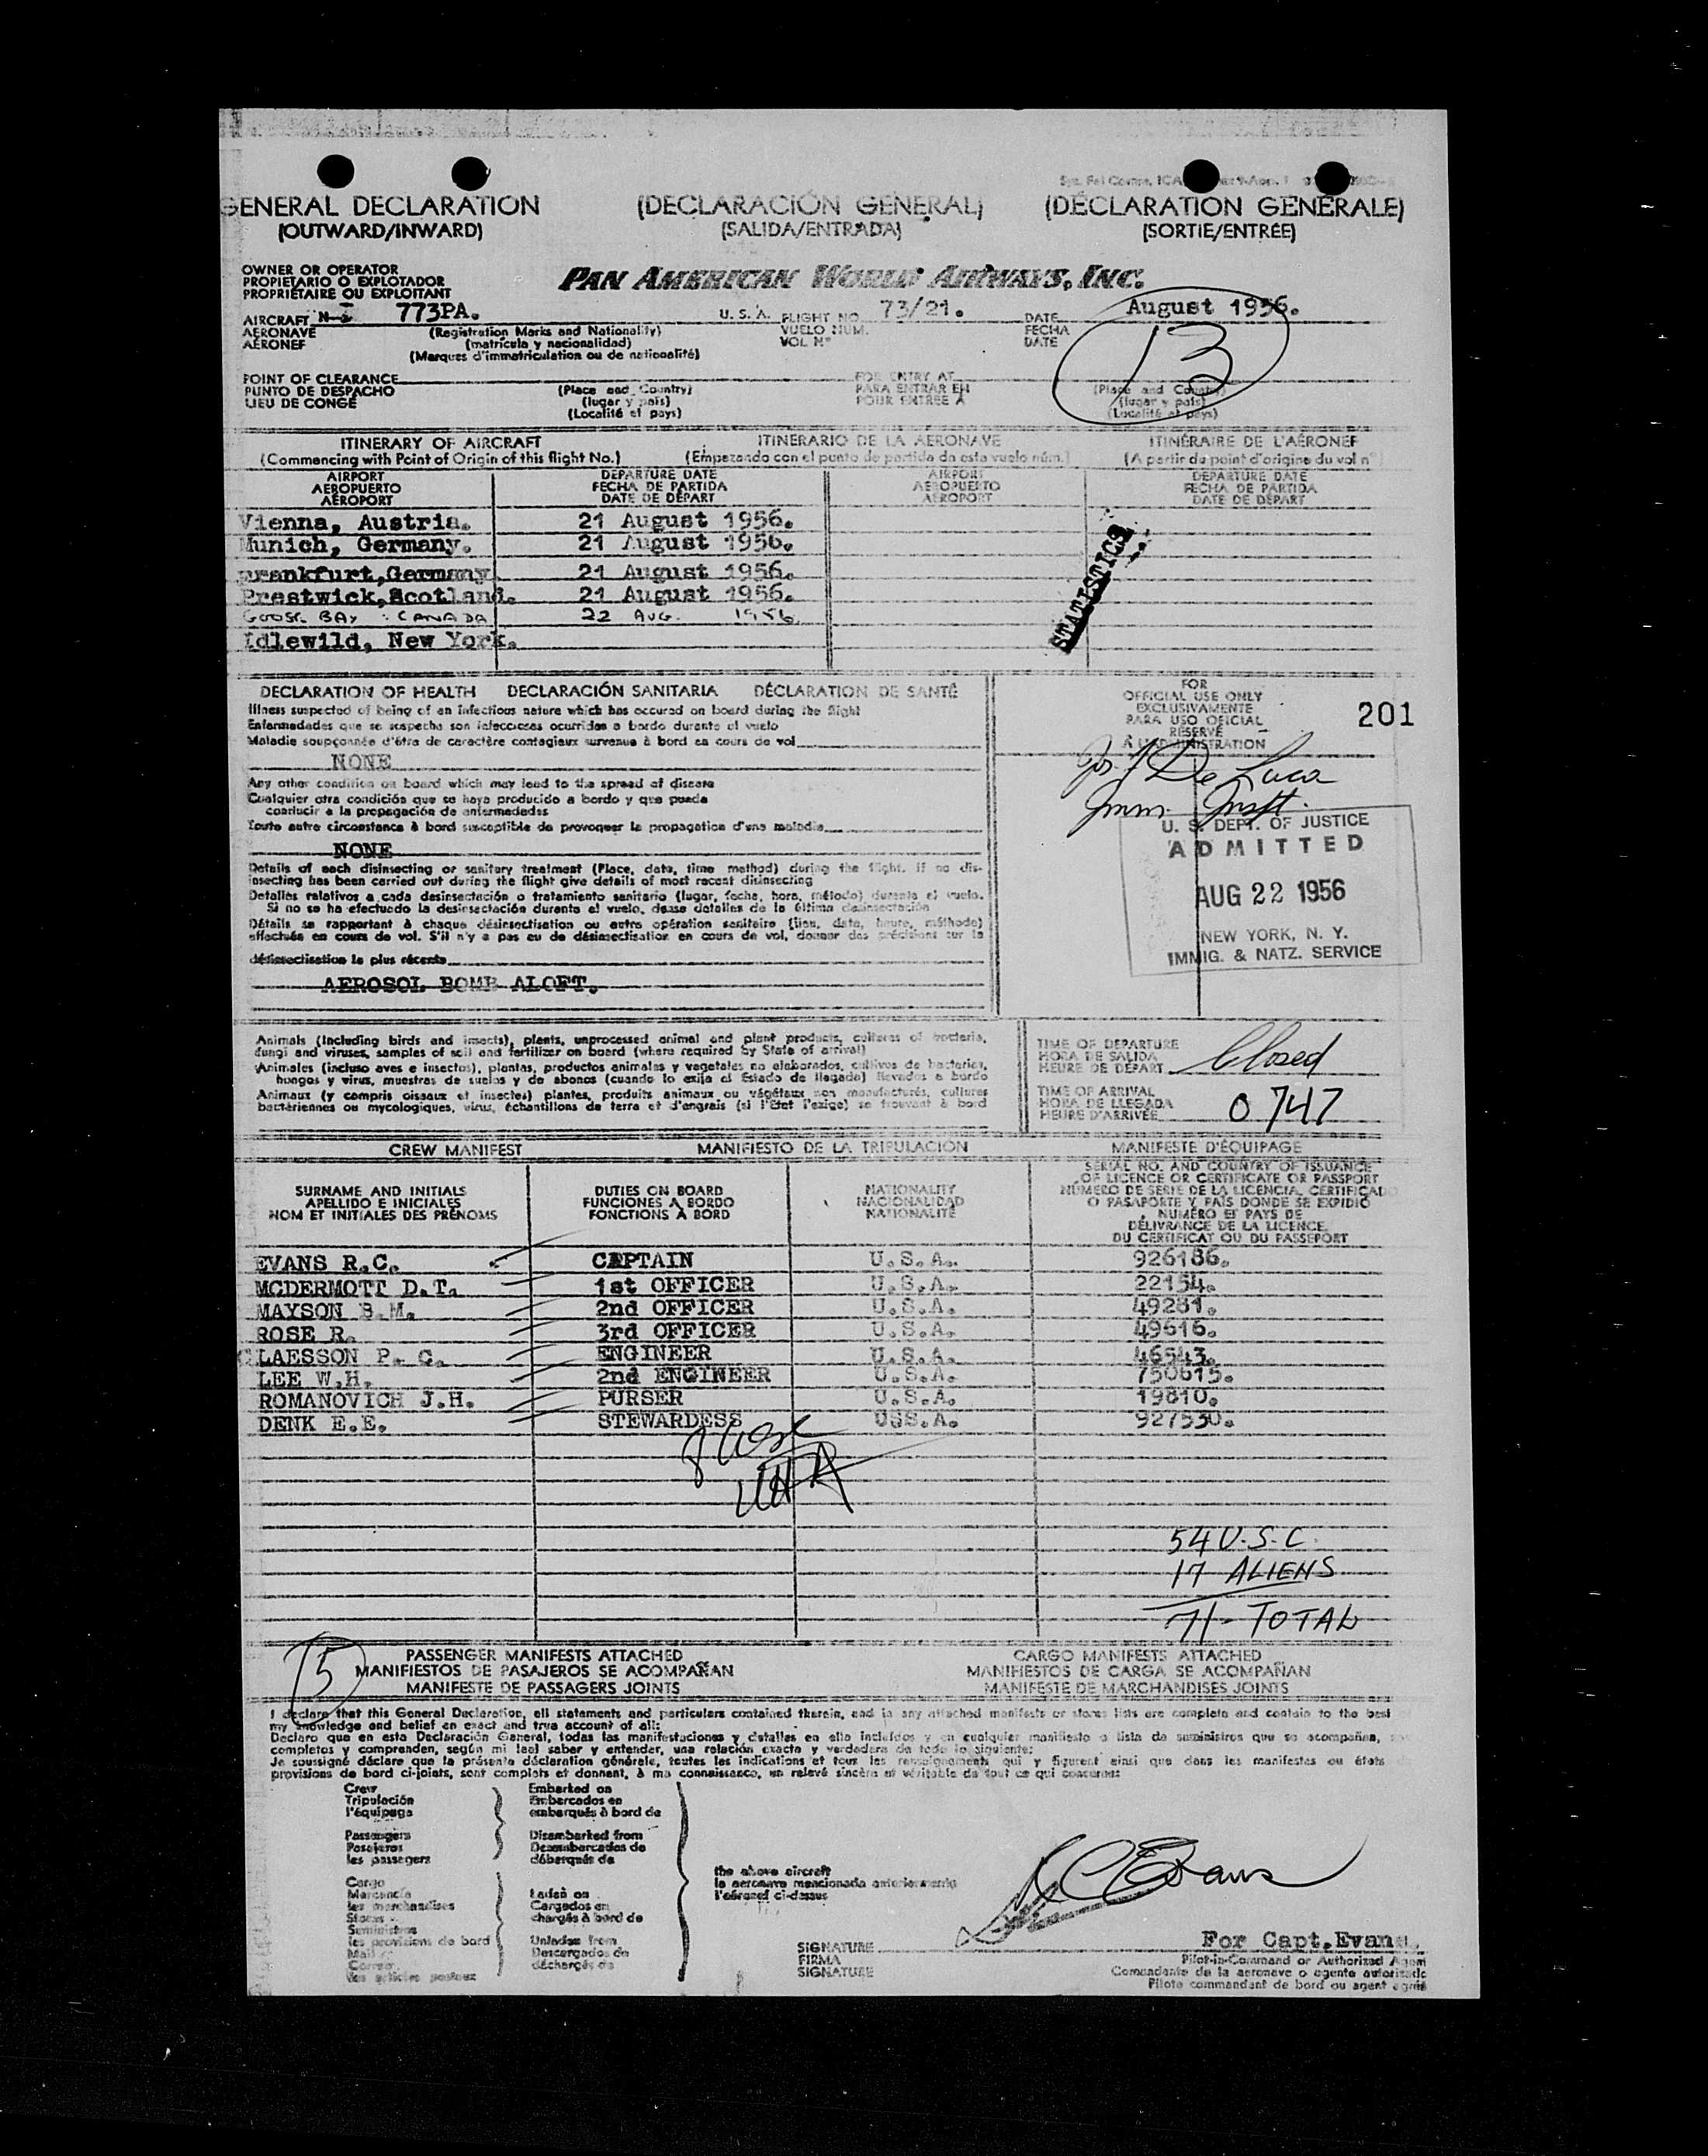 GENERAL DECLARATION (DECLARACIÓN GENERAL) (DÉCLARATION GÉNÉRALE)
(OUTWARD/INWARD) (SALIDA/ENTRADA) (SORTIE/ENTRÉE)
OWNER OR OPERATOR
PROPIETARIO O EXPLOTADOR
PROPRIÉTAIRE OU EXPLOITANT
PAN AMERICAN WORLD AIRWAYS, INC.
AIRCRAFT N- 773PA. U. S. A. FLIGHT NO. 73/21. DATE August 1956.
AERONAVE (Registration Marks and Nationality) VUELO NUM. FECHA
AÉRONEF (matrícula y nacionalidad) VOL Nº DATE
(Marques d'immatriculation ou de nationalité)
13
POINT OF CLEARANCE FOR ENTRY AT
PUNTO DE DESPACHO (Place and Country) PARA ENTRAR EN (Place and Country)
LIEU DE CONGÉ (lugar y país) POUR ENTRÉE À (lugar y país)
(Localité et pays) (Localité et pays)
ITINERARY OF AIRCRAFT ITINERARIO DE LA AERONAVE ITINÉRAIRE DE L'AÉRONEF
(Commencing with Point of Origin of this flight No.) (Empezando con el punto de partida de este vuelo núm.) (A partir du point d'origine du vol nº)
AIRPORT DEPARTURE DATE AIRPORT DEPARTURE DATE
AEROPUERTO FECHA DE PARTIDA AEROPUERTO FECHA DE PARTIDA
AÉROPORT DATE DE DÉPART AÉROPORT DATE DE DÉPART
Vienna, Austria. 21 August 1956.
Munich, Germany. 21 August 1956.
Frankfurt,Germany 21 August 1956.
Prestwick,Scotland. 21 August 1956.
GOOSE BAY : CANADA 22 AUG. 1956
Idlewild, New York.
STATISTICS
DECLARATION OF HEALTH DECLARACIÓN SANITARIA DÉCLARATION DE SANTÉ
Illness suspected of being of an infectious nature which has occured on board during the flight
Enfermedades que se sospecha son infecciosas ocurridas a bordo durante el vuelo
Maladie soupçonnée d'être de caractère contagieux survenue à bord en cours de vol
NONE
Any other condition on board which may lead to the spread of disease
Cualquier otra condición que se haya producido a bordo y que pueda
conducir a la propagación de enfermedades
Toute autre circonstance à bord susceptible de provoquer la propagation d'une maladie
NONE
Details of each disinsecting or sanitary treatment (Place, date, time method) during the flight. If no dis-
insecting has been carried out during the flight give details of most recent disinsecting
Detalles relativos a cada desinsectación o tratamiento sanitario (lugar, fecha, hora, método) durante el vuelo.
Si no se ha efectuado la desinsectación durante el vuelo, dense detalles de la última desinsectación
Détails se rapportant à chaque désinsectisation ou autre opération sanitaire (lieu, date, heure, méthode)
effectuée en cours de vol. S'il n'y a pas eu de désinsectisation en cours de vol, donner des précisions sur la
désinsectisation la plus récente
AEROSOL BOMB ALOFT.
FOR
OFFICIAL USE ONLY
EXCLUSIVAMENTE
PARA USO OFICIAL
RÉSERVÉ
À L'ADMINISTRATION
201
Jos. J De Luca
Imm. Inspt.
U. S. DEPT. OF JUSTICE
ADMITTED
AUG 22 1956
NEW YORK, N. Y.
IMMIG. & NATZ. SERVICE
Animals (Including birds and insects), plants, unprocessed animal and plant products, cultures of bacteria,
fungi and viruses, samples of soil and fertilizer on board (where required by State of arrival)
Animales (incluso aves e insectos), plantas, productos animales y vegetales no elaborados, cultivos de bacterias,
hongos y virus, muestras de suelos y de abonos (cuando lo exija el Estado de llegada) llevados a bordo
Animaux (y compris oiseaux et insectes) plantes, produits animaux ou végétaux non manufacturés, cultures
bactériennes ou mycologiques, virus, échantillons de terre et d'engrais (si l'État l'exige) se trouvant à bord
TIME OF DEPARTURE
HORA DE SALIDA
HEURE DE DÉPART Closed
TIME OF ARRIVAL
HORA DE LLEGADA
HEURE D'ARRIVÉE 0747
CREW MANIFEST MANIFIESTO DE LA TRIPULACIÓN MANIFESTE D'ÉQUIPAGE
SURNAME AND INITIALS
APELLIDO E INICIALES
NOM ET INITIALES DES PRÉNOMS
DUTIES ON BOARD
FUNCIONES A BORDO
FONCTIONS À BORD
NATIONALITY
NACIONALIDAD
NATIONALITÉ
SERIAL NO. AND COUNTRY OF ISSUANCE
OF LICENCE OR CERTIFICATE OR PASSPORT
NÚMERO DE SERIE DE LA LICENCIA, CERTIFICAD
O PASAPORTE Y PAÍS DONDE SE EXPIDIÓ
NUMÉRO ET PAYS DE
DÉLIVRANCE DE LA LICENCE,
DU CERTIFICAT OU DU PASSEPORT
EVANS R.C. CAPTAIN U.S.A. 926186.
MCDERMOTT D.T. 1st OFFICER U.S.A. 22154.
MAYSON B.M. 2nd OFFICER U.S.A. 49281.
ROSE R. 3rd OFFICER U.S.A. 49616.
CLAESSON P. G. ENGINEER U.S.A. 46543.
LEE W.H. 2nd ENGINEER U.S.A. 750615.
ROMANOVICH J.H. PURSER U.S.A. 19810.
DENK E.E. STEWARDESS USS.A. 927530.
54 U.S.C.
17 ALIENS
71- TOTAL
15
PASSENGER MANIFESTS ATTACHED CARGO MANIFESTS ATTACHED
MANIFIESTOS DE PASAJEROS SE ACOMPAÑAN MANIFIESTOS DE CARGA SE ACOMPAÑAN
MANIFESTE DE PASSAGERS JOINTS MANIFESTE DE MARCHANDISES JOINTS
I declare that this General Declaration, all statements and particulars contained therein, and in any attached manifests or stores lists are complete and contain to the best of
my knowledge and belief an exact and true account of all:
Declaro que en esta Declaración General, todas las manifestaciones y detalles en ella incluídos y en cualquier manifiesto o lista de suministros que se acompañan, son
completos y comprenden, según mi leal saber y entender, una relación exacta y verdadera de todo lo siguiente:
Je soussigné déclare que la présente déclaration générale, toutes les indications et tous les renseignements qui y figurent ainsi que dans les manifestes ou états
provisions de bord ci-joints, sont complets et donnent, à ma connaissance, un relevé sincère et véritable de tout ce qui concerne:
Crew Embarked on
Tripulación Embarcados en
l'équipage embarqués à bord de
Passengers Disembarked from
Pasajeros Desembarcados de
les passagers débarqués de
the above aircraft
la aeronave mencionada anteriormente
l'aéronef ci-dessus
Cargo
Mercancía Laden on
les marchandises Cargados en
Stores chargés à bord de
Suministros
les provisions de bord Unladen from
Mail Descargados de
Correo déchargés de
les articles postaux
R C Evans
For Capt.Evans.
SIGNATURE Pilot-in-Command or Authorized Agent
FIRMA Comandante de la aeronave o agente autorizado
SIGNATURE Pilote commandant de bord ou agent agréé